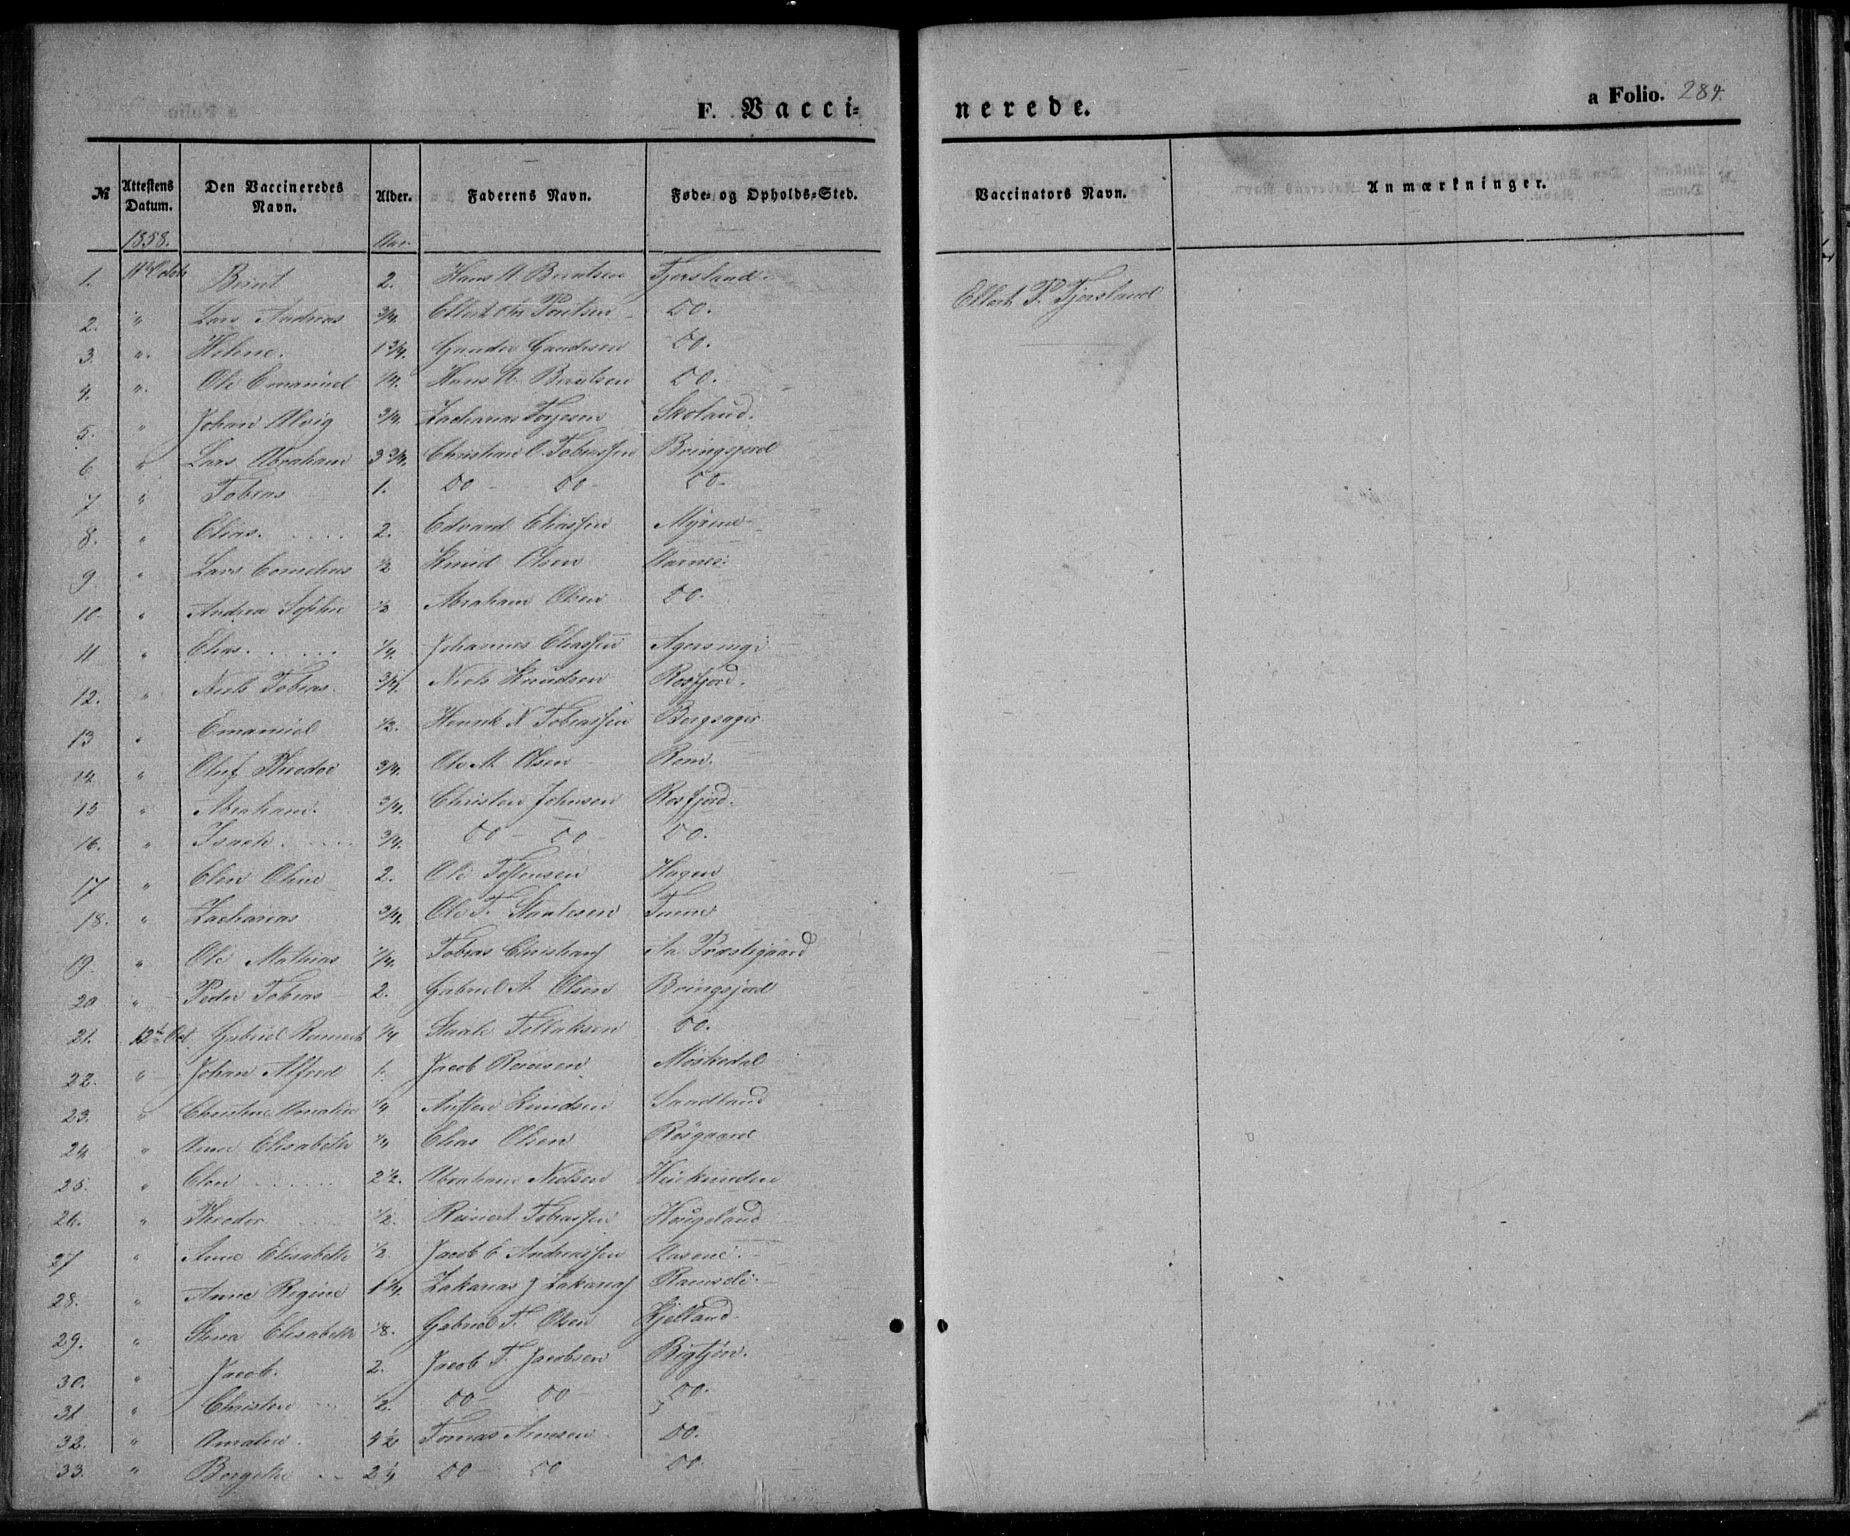 F. Vacci= nerede. a Folio. 284.
№ Attestens Datum. Den Vaccineredes Navn. Alder. Faderens Navn. Føde- og Opholds-Sted. Vaccinators Navn. Anmærkninger.
1858. Aar
1. 11te Octob Bernt 2. Hans A Berntsen Fjersland. Ellert P. Fjersland
2. " Lars Andreas 3/4. Do.
3. " Helene. 1 3/4. Gunder Gundersen Do.
4. " Ole Emanuel 1/4. Hans A. Berntsen Do.
5. " Johan Alvig 3/4. Zacharias Torjesen Skoland.
6 " Lars Abraham 3 3/4. Christian O. Tobiassen Bringsjord
7 " Tobias 1. Do - Do - Do.
8. " Elias. 2. Edvard Eliassen Myrene
9 " Lars Cornelius 1/2 Knud Olsen Aarnes.
10. " Andrea Sophie 1/2 Abraham Olsen Do.
11 " Elias. 1/4. Johannes Eliassen
12. " Niels Tobias. 3/4. Niels Knudsen Rosfjord.
13 " Emanuel 1/2. Henrik N Tobiassen Bergsager
14. " Oluf Theodor 3/4. Ole M. Olsen Rom.
15 " Abraham. 3/4. Christen Johnsen Rosfjord.
16. " Isach. 3/4. Do - Do - Do.
17 " Elen Oline 2. Ole Hagen
18. " Zacharias 3/4. Ole T. Staalesen
19. " Ole Mathias 1/4. Tobias Christians Præstegaard
20 " Peder Tobias 2. Gabriel A. Olsen Bringsjord
21. 12te Oct Gabriel 1/4 Staale Tellaksen Do.
22. " Johan Alfred 1. Jacob Møskedal
23. " Amalie 1/4 Knudsen Sandland
24 " Anne Elisabeth 1/4 Elias Olsen
25. " Elen 2 1/2. Abraham Nielsen
26. " Theodor 1/2. Reinert Tobiassen Hougeland
27 " Anne Elisabeth 1/2. Jacob E Andreassen
28. " Anne Regine 1 1/4. Zakarias J Zakarias
29. " Elisabeth 1/8. Gabriel T. Olsen Kjelland.
30. " Jacob. 2. Jacob T. Jacobsen
31 " Christen 1/2. Do - Do - Do.
32. " Amalie. Tomas Do.
33. " Bergithe 2 1/4 Do - Do Do.